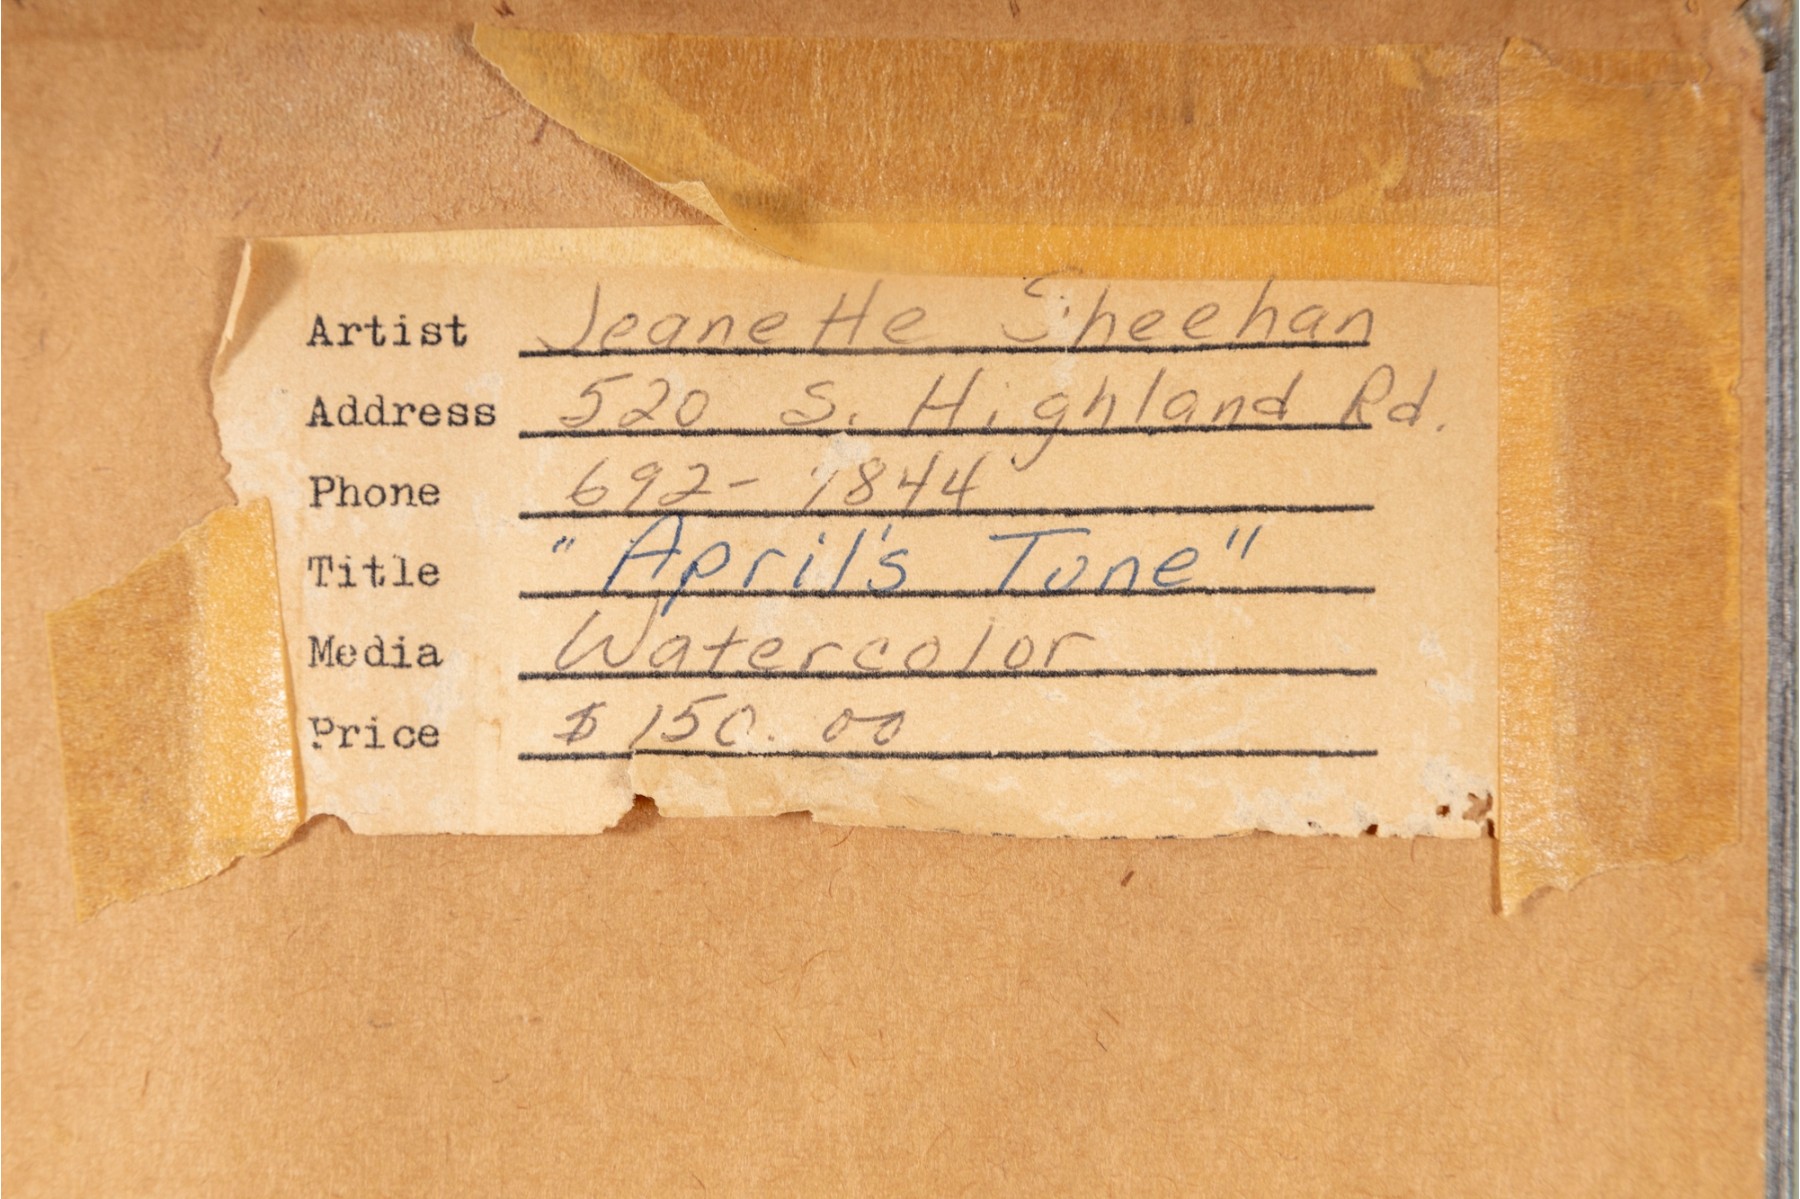 Artist Jeanette Sheehan
Address 520 S. Highland Rd.
Phone 692-1844
Title "April's Tune"
Media Watercolor
Price $150.00